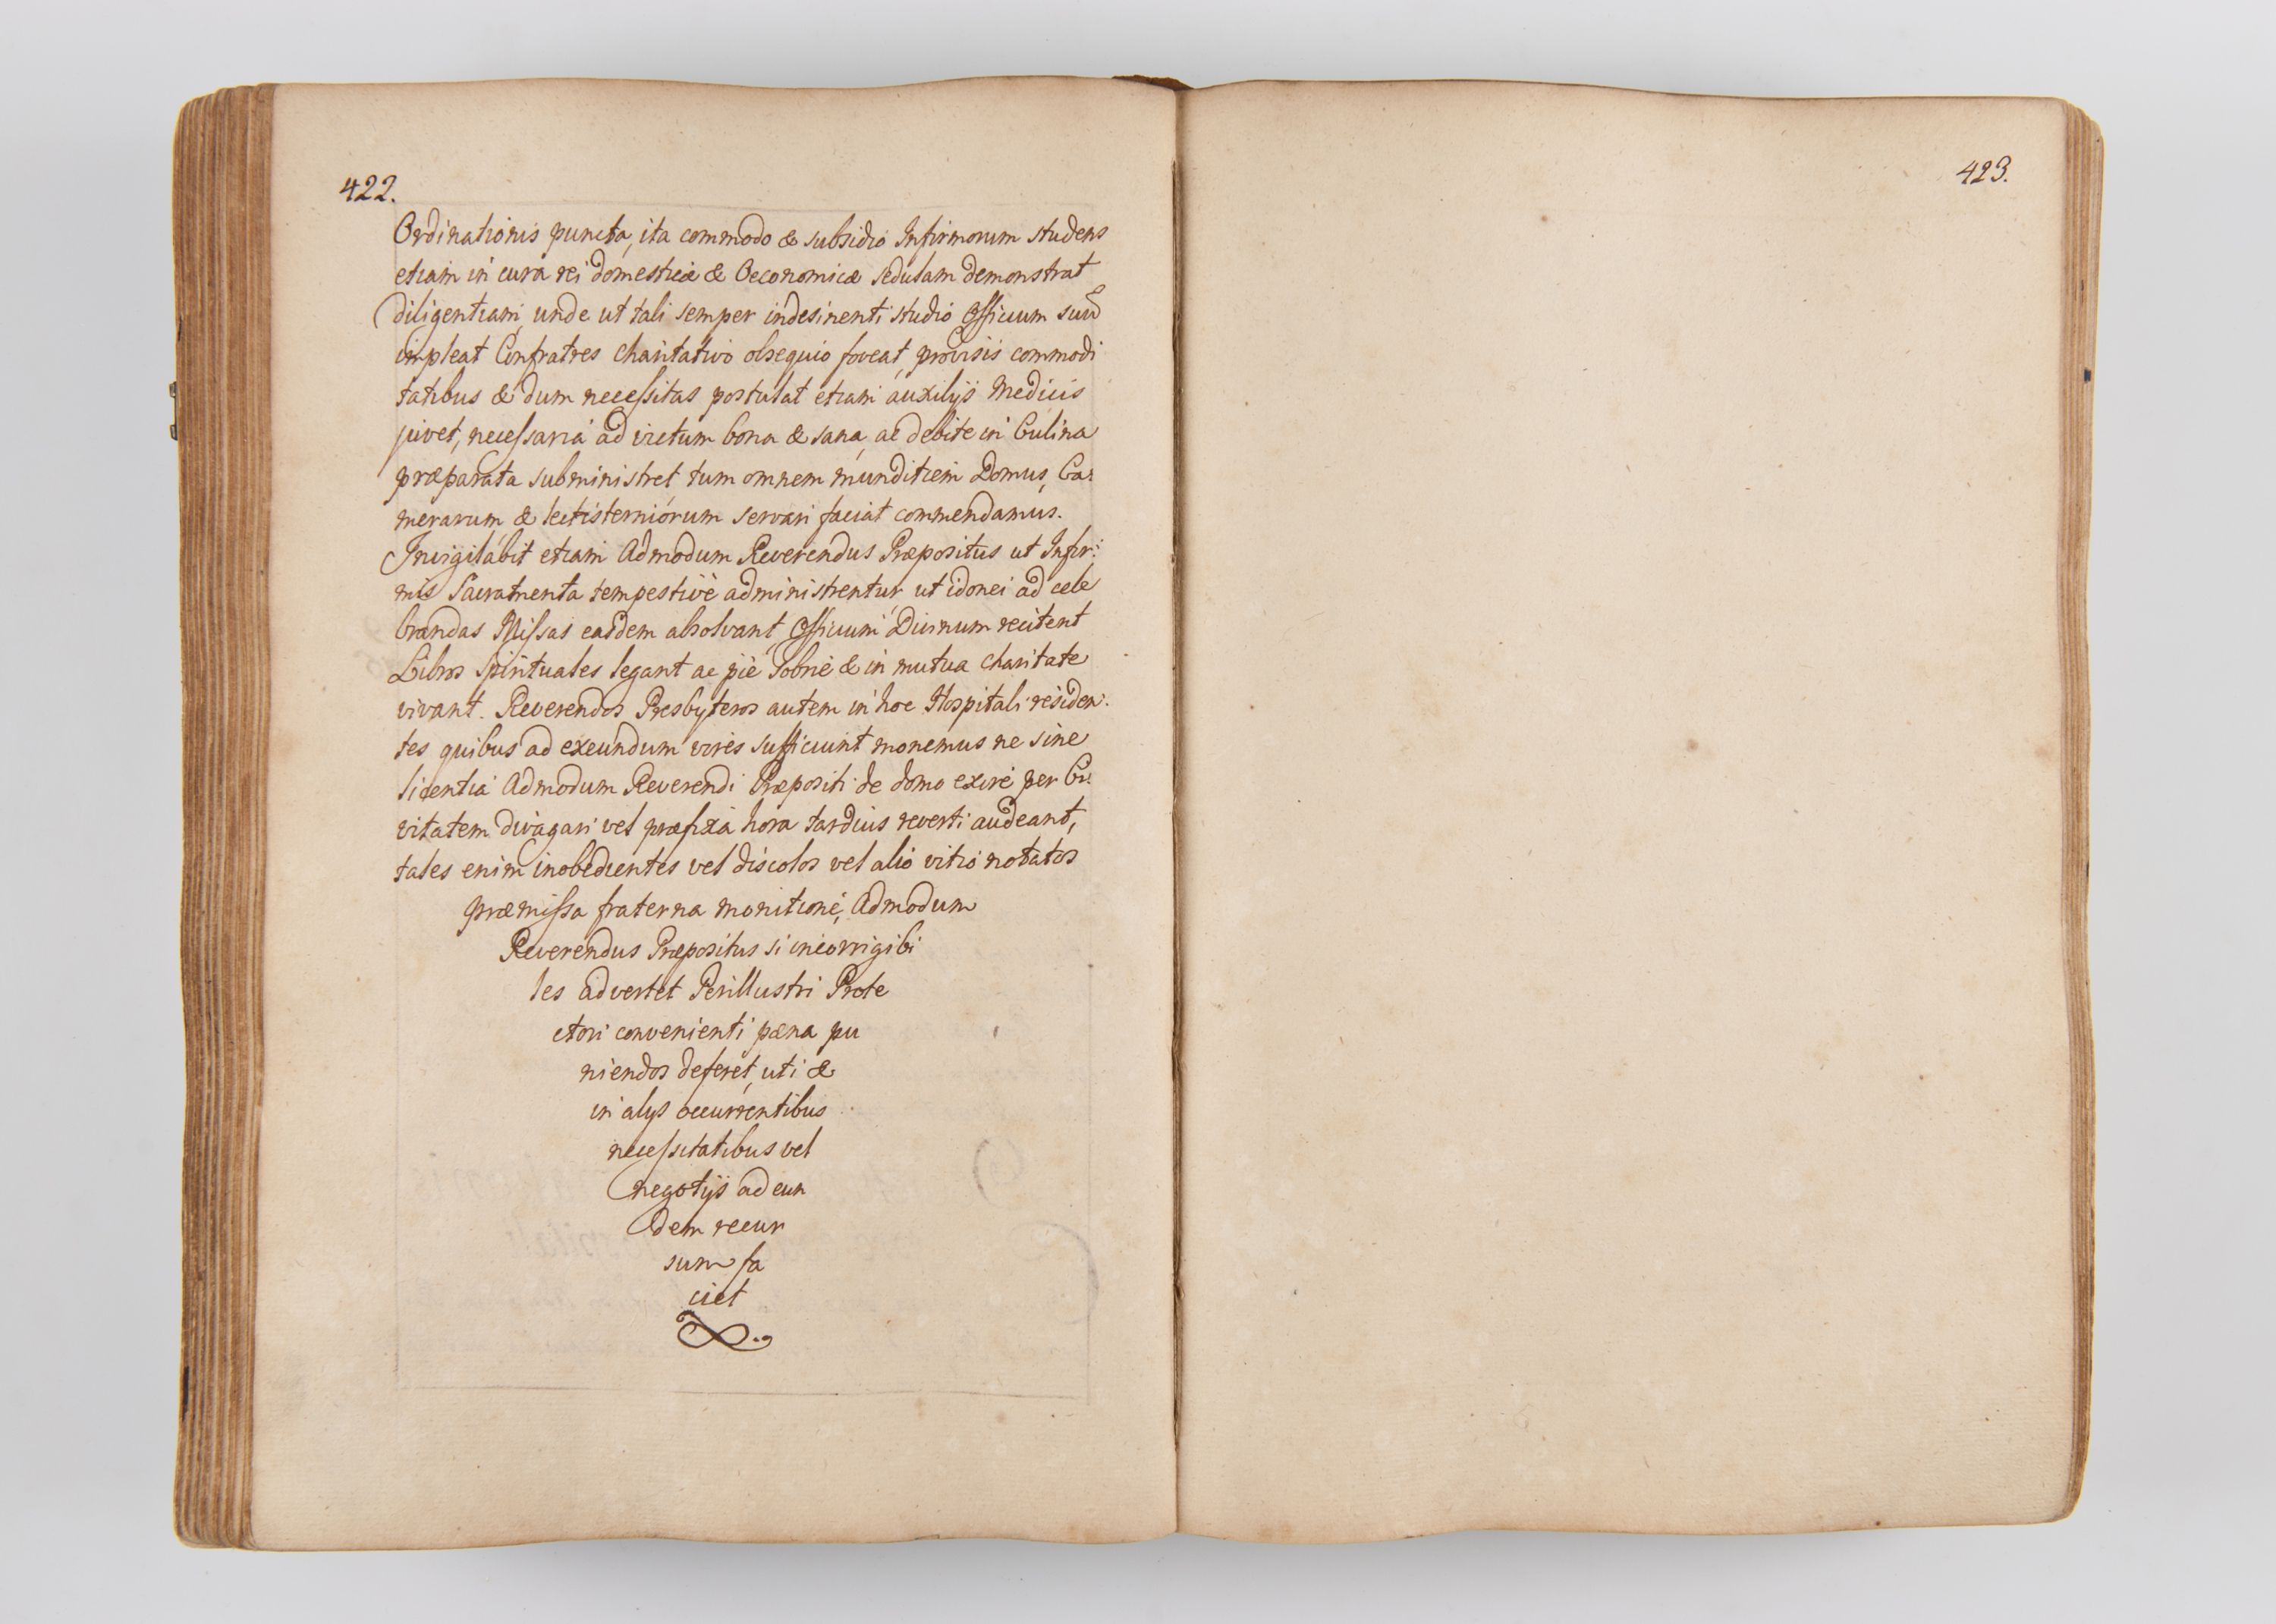 422.
Ordinationis puncta, ita commodo & subsidio Infirmorum studens
etiam in cura rei domesticæ & Oeconomicæ sedulam demonstrat
diligentiam, unde ut tali semper indesinenti studio Officium suū
impleat Confratres charitativo obsequio foveat, provisis commodi
tatibus & dum necessitas postulat etiam auxilijs Medicis
juvet, necessaria ad victum bona & sana, ac debite in Culina
præparata subministret tum omnem munditiem Domus, Ca:
merarum & lectisterniorum servari faciat commendamus.
Invigilabit etiam Admodum Reverendus Præpositus ut Infir:
mis Sacramenta tempestivè administrentur ut idonei ad cele
brandas Missas easdem absolvant, Officium Diurnum recitent
Libros Spirituales legant ac piè Sobriè & in mutua charitate
vivant. Reverendos Presbyteros autem in hoc Hospitali residen:
tes quibus ad exeundum vires sufficiunt monemus ne sine
licentia Admodum Reverendi Præpositi de domo exire per Ci:
vitatem divagari vel præfixa hora tardius reverti audeant,
tales enim inobedientes vel discolos vel alio vitio notatos
præmissa fraterna monitione, Admodum
Reverendus Præpositus si incorrigibi
les advertet Perillustri Prote
ctori convenienti pæna pu
niendos deferet, uti &
in alys occurrentibus
necessitatibus vel
negotijs ad eun
dem recur
sum fa
ciet
423.